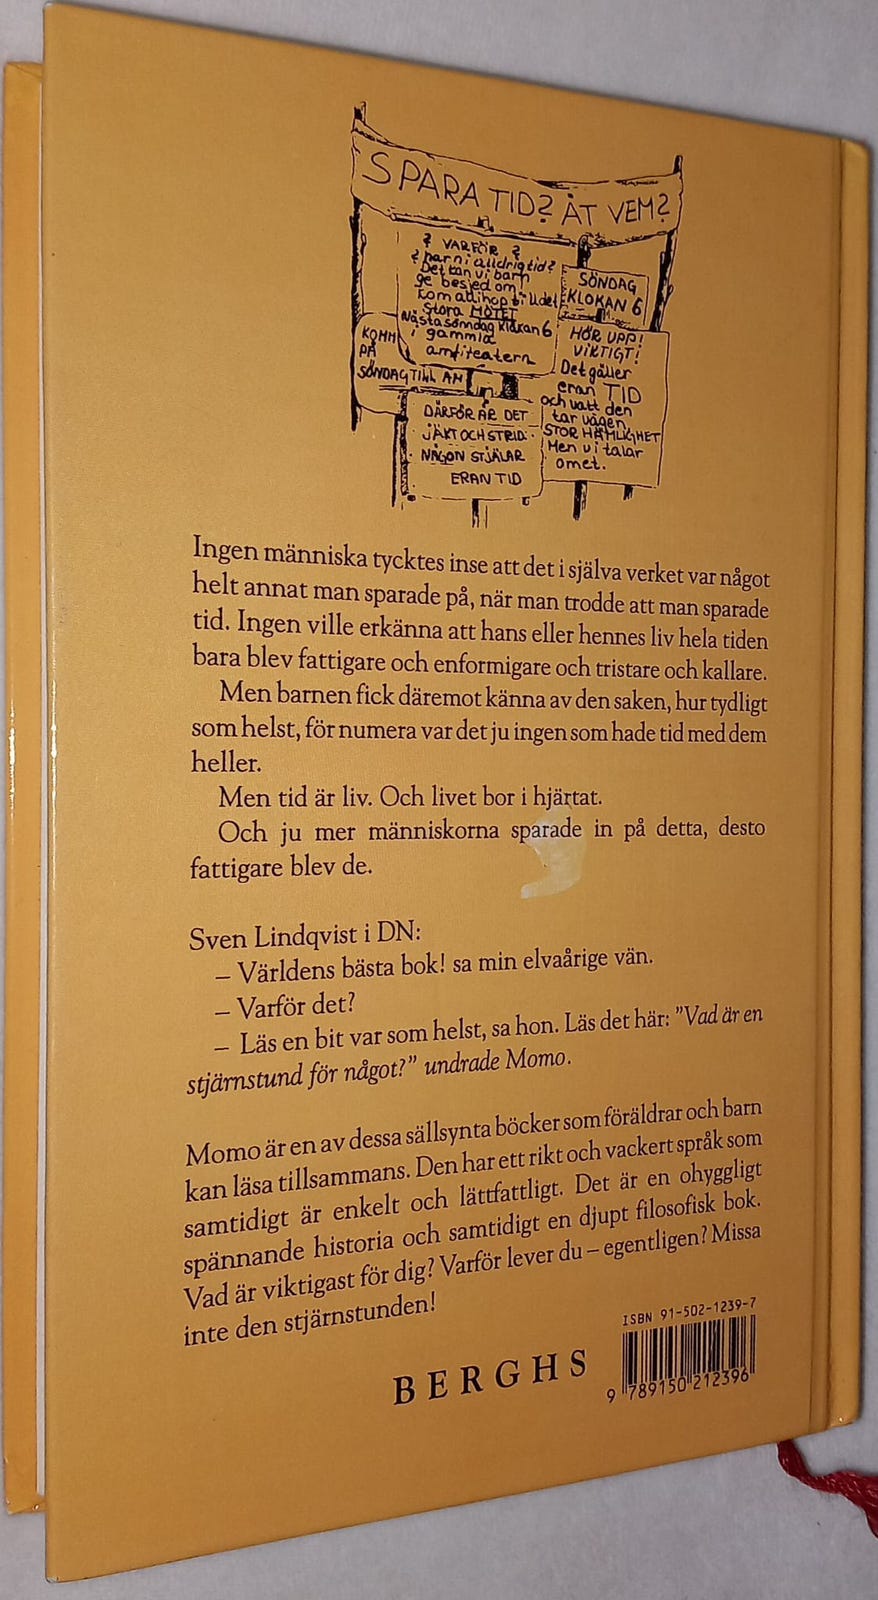 SPARA TID? ÅT VEM?
? VARFÖR ?
? har ni alldrig tid?
Det kan vi barn
ge besjed om
Kom allihop till det
Stora MÖTET
Nästa sönndag klåkan 6
i gammla
amfiteatern
SÖNDAG
KLOKAN 6
KOMM
PÅ
SÖNDAG TILL AM
HÖR UPP!
VIKTIGT!
Det gäller
eran TID
och vatt den
tar vägen
STOR HÄMLIGHET
Men vi talar
omet.
DÄRFÖR ÄR DET
JÄKT OCH STRID:
NÅGON STJÄLAR
ERAN TID
Ingen människa tycktes inse att det i själva verket var något
helt annat man sparade på, när man trodde att man sparade
tid. Ingen ville erkänna att hans eller hennes liv hela tiden
bara blev fattigare och enformigare och tristare och kallare.
Men barnen fick däremot känna av den saken, hur tydligt
som helst, för numera var det ju ingen som hade tid med dem
heller.
Men tid är liv. Och livet bor i hjärtat.
Och ju mer människorna sparade in på detta, desto
fattigare blev de.
Sven Lindqvist i DN:
– Världens bästa bok! sa min elvaårige vän.
– Varför det?
– Läs en bit var som helst, sa hon. Läs det här: ”Vad är en
stjärnstund för något?” undrade Momo.
Momo är en av dessa sällsynta böcker som föräldrar och barn
kan läsa tillsammans. Den har ett rikt och vackert språk som
samtidigt är enkelt och lättfattligt. Det är en ohyggligt
spännande historia och samtidigt en djupt filosofisk bok.
Vad är viktigast för dig? Varför lever du – egentligen? Missa
inte den stjärnstunden!
BERGHS
ISBN 91-502-1239-7
9 789150 212396